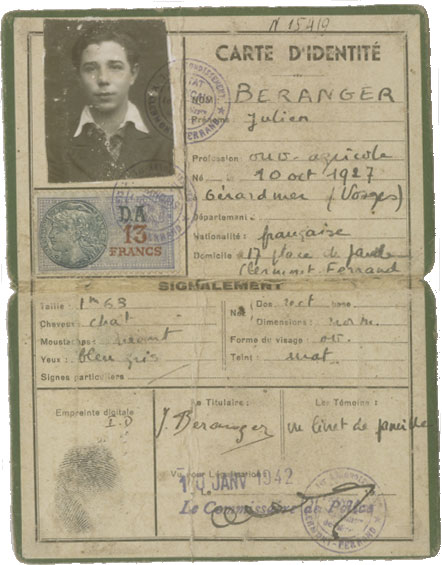 N 15419
CARTE D'IDENTITÉ
NOM BERANGER
Prénoms Julien
Profession ouv. agricole
Né 10 oct 1927
Gérardmer (Vosges)
Département :
Nationalité : française
Domicile 17 place de Jaude
Clermont-Ferrand
DA
13
FRANCS
SIGNALEMENT
Taille : 1m 63
Cheveux : chat
Moustache : néant
Yeux : bleu gris
Signes particuliers
Nez
Dos : rect base
Dimensions : norm.
Forme du visage ov.
Teint : mat
Empreinte digitale
I.D
Le Titulaire :
J. Beranger
Les Témoins :
un livret de famille
10 JANV 1942
Le Commissaire de Police
CLERMONT-FERRAND